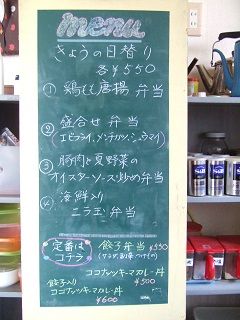 menu
きょうの日替り
各¥550
① 鶏もも唐揚 弁当
② 盛合せ 弁当
(エビフライ、メンチカツ、シュウマイ)
③ 豚肉と夏野菜の
オイスターソース炒め弁当
④ 海鮮入り
ニラ玉 弁当
定番は
コチラ
餃子弁当 ¥550
ココナッツキーマカレー丼
¥500
餃子入り
ココナッツキーマカレー丼
¥600